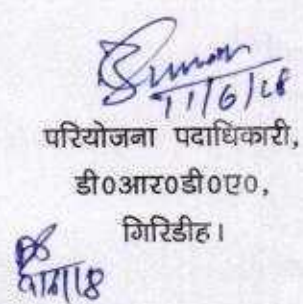 11/6/18
परियोजना पदाधिकारी,
डी०आर०डी०ए०,
गिरिडीह।